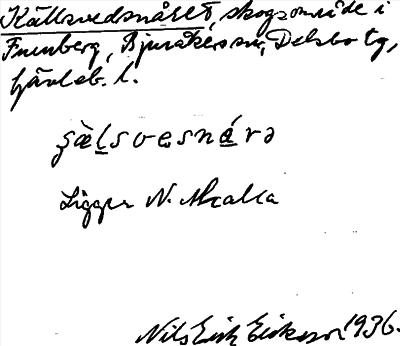 Källsvedsnåret, skogsområde i
Furuberg, Bjuråkers sn, Delsbo tg,
Gävleb. l.
ʂälsvesnárə
Ligger N.
Nils Erik Eriksson 1936.